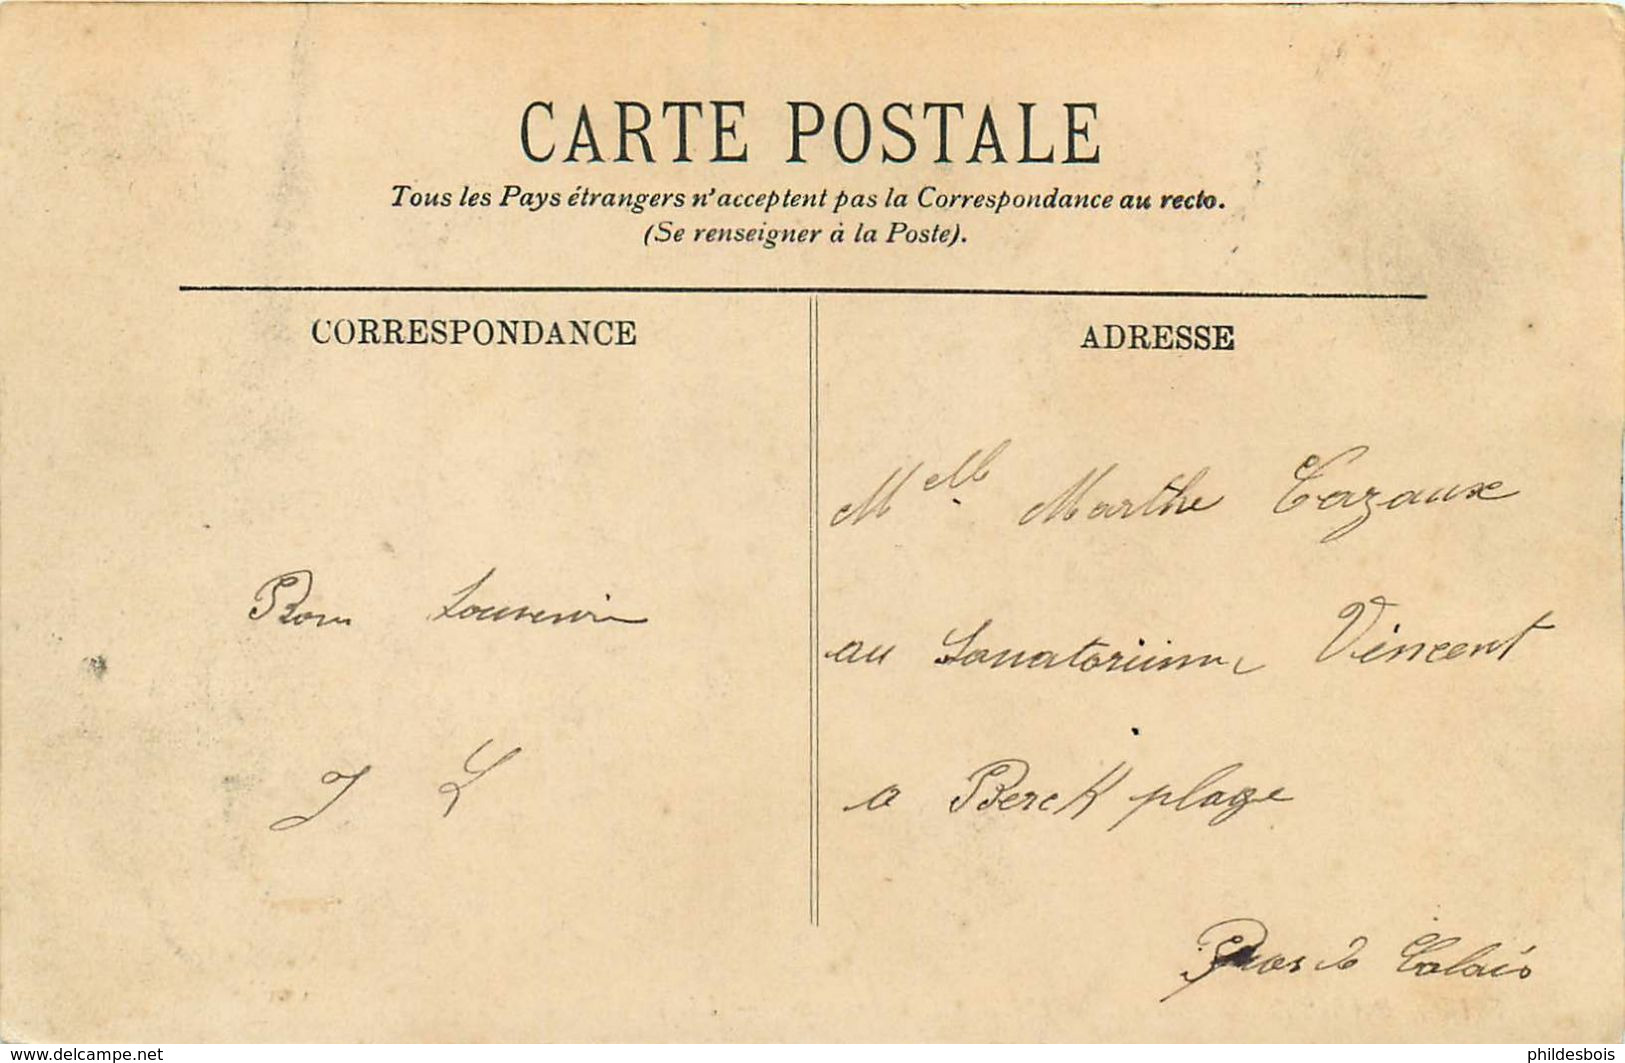 CARTE POSTALE
Tous les Pays étrangers n'acceptent pas la Correspondance au recto.
(Se renseigner à la Poste).
CORRESPONDANCE
Bon Souvenir
J L
ADRESSE
Melle Marthe Cazaux
au Sanatorium Vincent
a Berck plage
Pas de Calais
www.delcampe.net
phildesbois